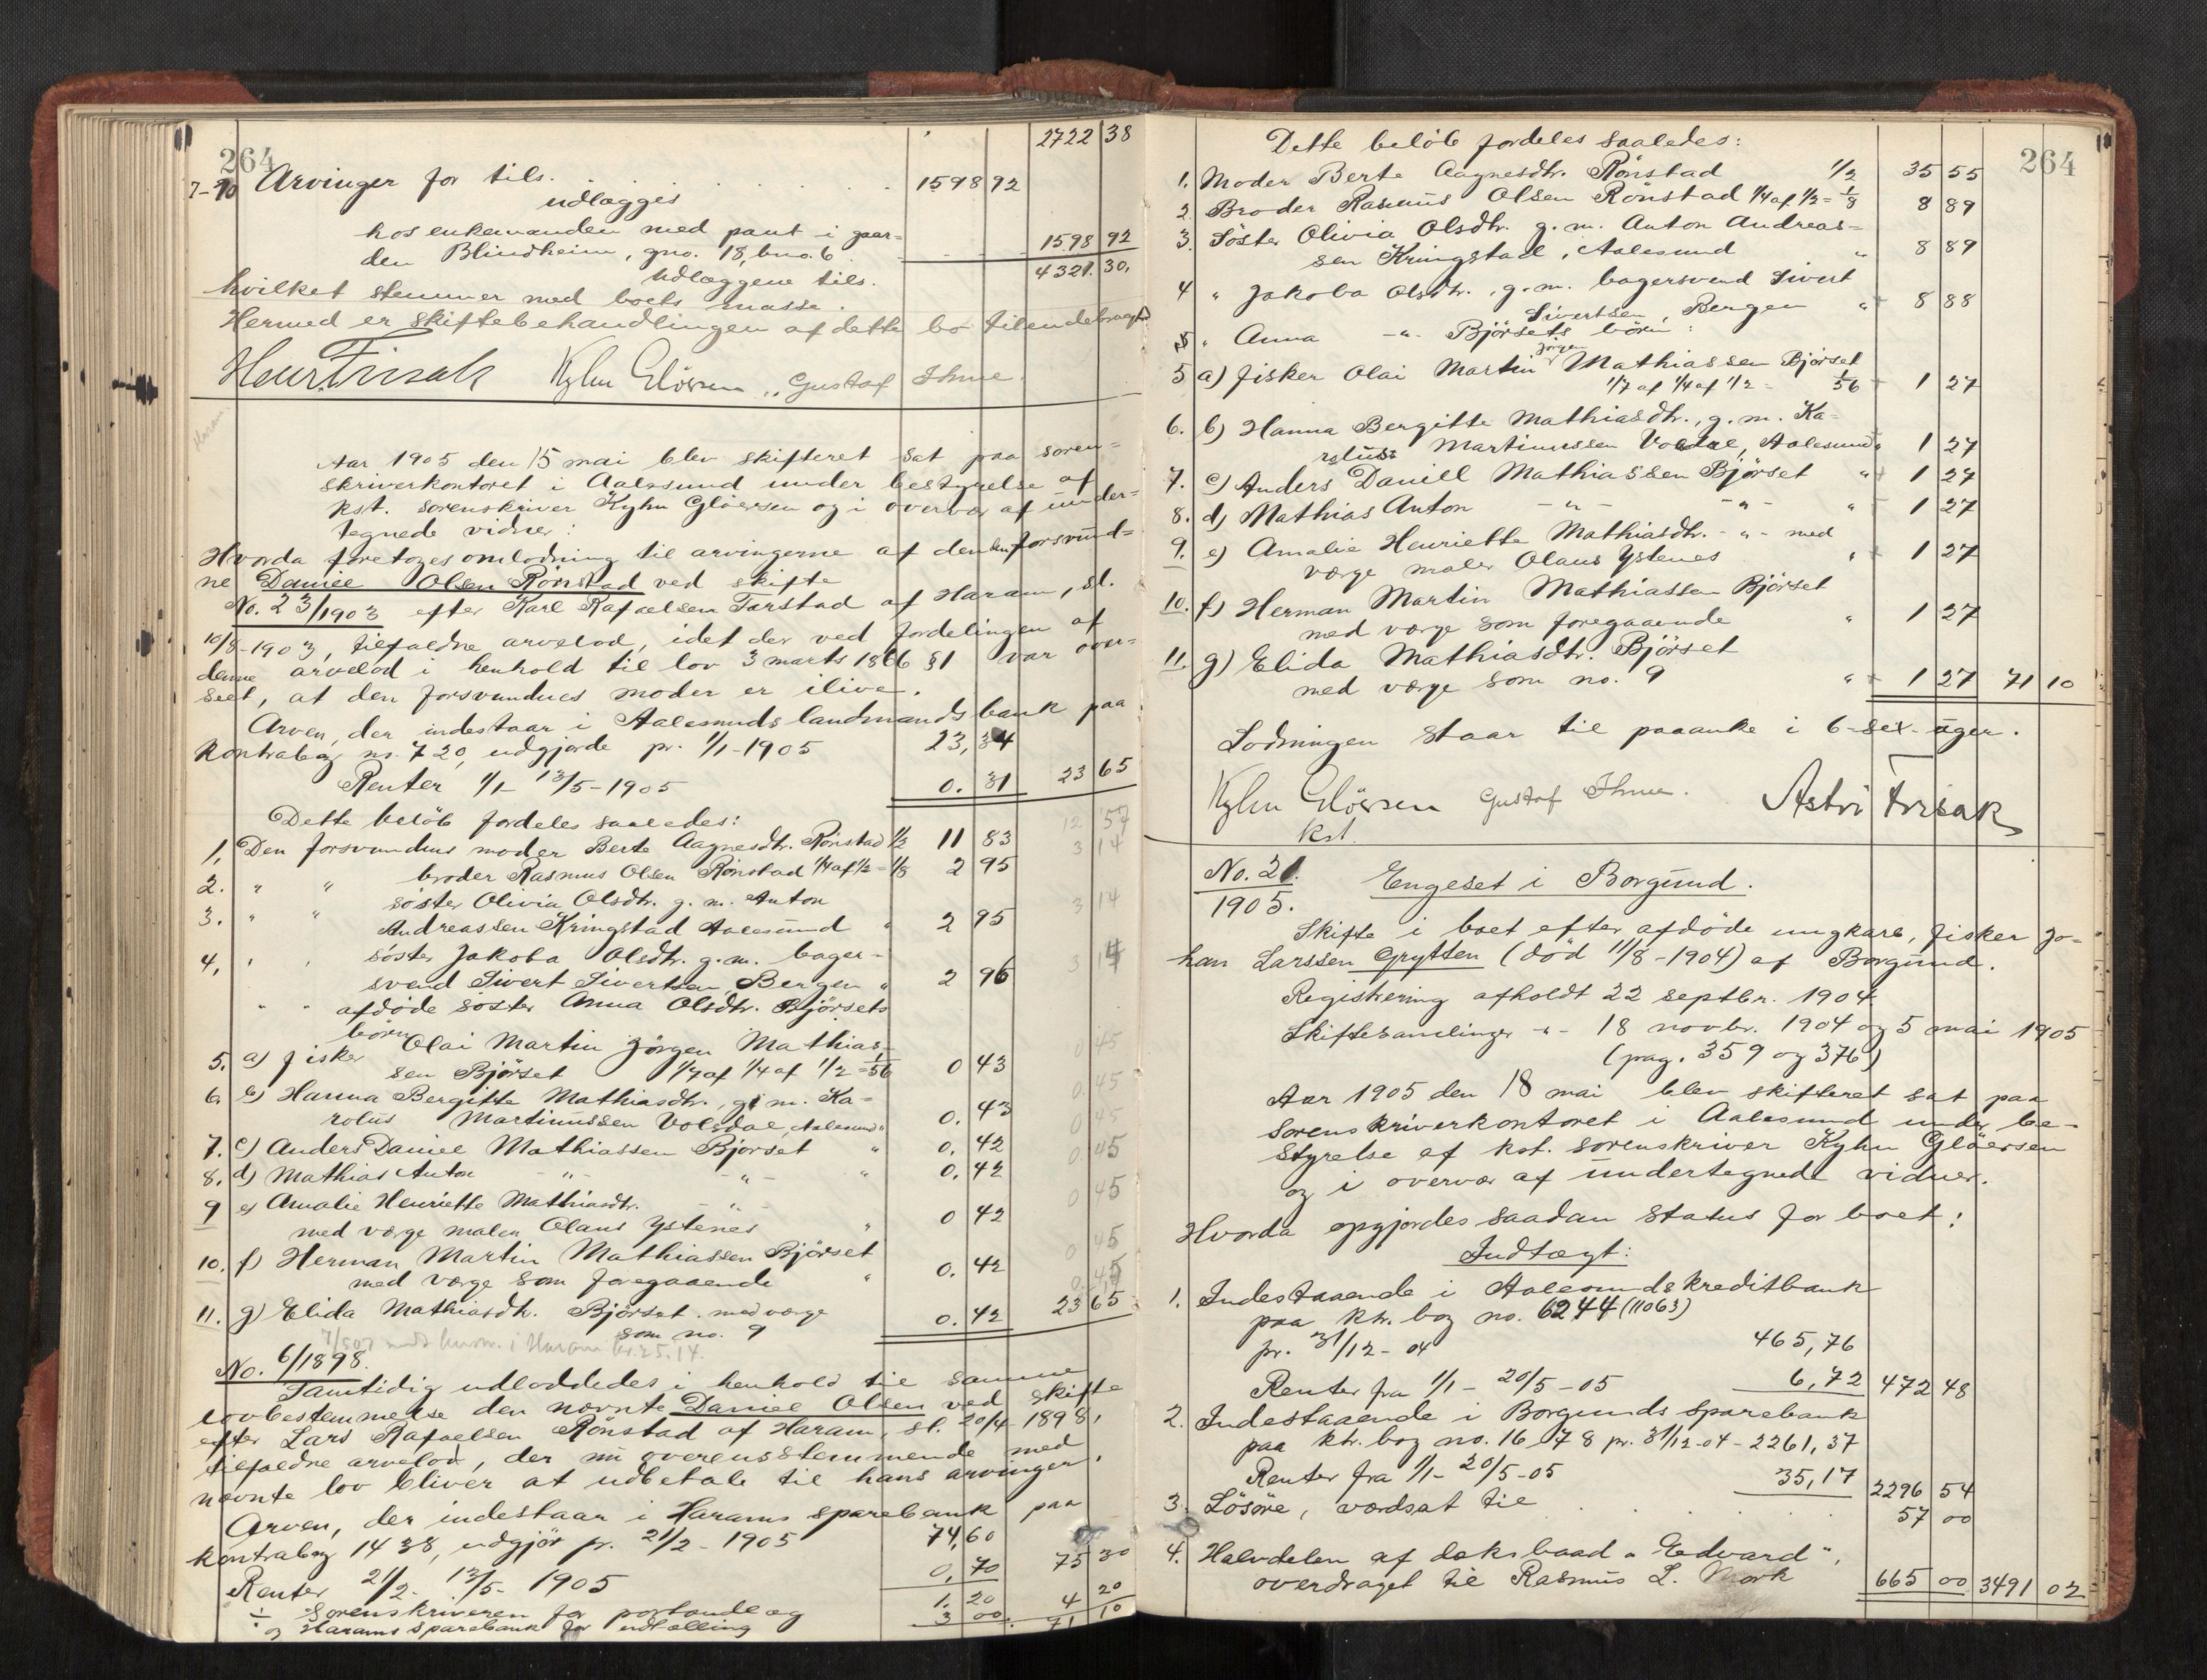 264
2722 38
7-10 Arvinger for tils. 1598 92
udlægges
hos enkemanden med pant i gaar=
den Blindheim, gno. 18, bno. 6 1598 92
Udlæggene tils. 4321. 30.
hvilket stemmer med boets masse.
Hermed er skiftebehandlingen af dette bo tilendebragt
Kyhn Glöersen Gustaf Ihme.
Haram
Aar 1905 den 15 mai blev skifteret sat paa soren=
skriverkontoret i Aalesund under bestyrelse af
kst. sorenskriver Kyhn Glöersen og i overvær af under=
tegnede vidner:
Hvorda foretoges omlodning til arvingerne af den forsvund=
ne Daniel Olsen Rönstad ved skifte
No. 23/1903 efter Karl Rafaelsen Tarstad af Haram, st.
10/8-1903, tilfaldne arvelod, idet der ved fordelingen af
denne arvelod i henhold til lov 3 marts 1866 §1 var over=
seet, at den forsvundnes moder er ilive.
Arven, der indestaar i Aalesunds landmandsbank paa
kontrabog no. 720, udgjorde pr. 1/1-1905 23,34
Renter 1/1- 13/5-1905 0. 31 23 65
Dette belöb fordeles saaledes: 12 57
1. Den forsvundnes moder Berte Aagnesdtr. Rönstad 1/2 11 83 3 14
2. " " broder Rasmus Olsen Rönstad 1/4 af 1/2 = 1/8 2 95
3. " " söster Olivia Olsdtr. g. m. Anton
Andreassen Kringstad Aalesund " 2 95 3 14
4. " " söster Jakoba Olsdtr. g. m. bager-
svend Sivert Sivertsen, Bergen " 2 96 3 14
" " afdöde söster Anna Olsdtr. Björsets
börn
5. a) fisker Olai Martin Jörgen Mathias-
sen Björset 1/7 af 1/4 af 1/2 = 1/56 0 43 0 45
6. b) Hanna Bergitte Mathiasdtr., g. m. Ka=
rolus Martinussen Volsdal, Aalesund " 0. 43 0 45
7. c) Anders Daniel Mathiassen Björset " 0. 42 0 45
8. d) Mathias Anton -"- -"- " 0. 42 0 45
9 e) Amalie Henriette Mathiasdtr. -"-
med værge maler Olaus Ystenes " 0 42 0 45
10. f) Herman Martin Mathiassen Björset
med værge som foregaaende " 0. 42 0 45
11. g) Elida Mathiasdtr. Björset med værge
som no. 9 0. 42 23 65
No. 6/1898.
Samtidig udloddedes i henhold til samme
lovbestemmelse den nævnte Daniel Olsen ved skifte
efter Lars Rafaelsen Rönstad af Haram, st. 20/4 1898,
tilfaldne arvelod, der nu overensstemmende med
nævnte lov bliver at udbetale til hans arvinger.
Arven, der indestaar i Harams sparebank paa
kontrabog 1438, udgjör pr. 21/2 - 1905 74,60
Renter 21/2 - 13/5 - 1905 0,70 75 30
÷ Sorenskriveren for portoudlæg 1. 20
og Harams sparebank for udtælling 3 00. 4 20
71 10
264
Dette belöb fordeles saaledes:
1. Moder Berte Aagnesdtr. Rönstad 1/2 35 55
2. Broder Rasmus Olsen Rönstad 1/4 af 1/2 = 1/8 8 89
3. Söster Olivia Olsdtr. g. m. Anton Andreas=
sen Kringstad, Aalesund " 8 89
4 " Jakoba Olsdtr., g. m. bagersvend Sivert
Sivertsen, Bergen " 8 88
" Anna -"- Björsets börn:
5 a) fisker Olai Martin Jörgen Mathiassen Björset
1/7 af 1/4 af 1/2 = 1/56 1 27
6. b) Hanna Bergitte Mathiasdtr., g. m. Ka=
rolus Martinussen Volsdal, Aalesund " 1 27
7. c) Anders Daniel Mathiassen Björset " 1 27
8. d) Mathias Anton -"- -"- " 1 27
9. e) Amalie Henriette Mathiasdtr. -"- med
værge maler Olaus Ystenes " 1 27
10. f) Herman Martin Mathiassen Björset
med værge som foregaaende " 1 27
11. g) Elida Mathiasdtr. Björset
med værge som no. 9 " 1 27 71 10
Lodningen staar til paaanke i 6-sex-uger.
Kyhn Glöersen Gustaf Ihme. Astri Frisak
kst.
No. 21.
1905. Engeset i Borgund.
Skifte i boet efter afdöde ungkarl, fisker Jo=
han Larssen Grytten (död 11/8-1904) af Borgund.
Registrering afholdt 22 septbr. 1904
Skiftesamlinger -"- 18 novbr. 1904 og 5 mai 1905
(pag. 359 og 376)
Aar 1905 den 18 mai blev skifteret sat paa
sorenskriverkontoret i Aalesund under be-
styrelse af kst. sorenskriver Kyhn Glöersen
og i overvær af undertegnede vidner.
Hvorda opgjordes saadan status for boet:
Indtægt:
1. Indestaaende i Aalesunds kreditbank
paa ktr. bog no. 6244 (11063)
pr. 31/12 - 04 465,76
Renter fra 1/1 - 20/5 - 05 6,72 472 48
2. Indestaaende i Borgunds sparebank
paa ktr. bog no. 1678 pr. 31/12-04 - 2261,37
Renter fra 1/1 - 20/5-05 35,17 2296 54
3. Lösöre, værdsat til 57 00
4. Halvdelen af dæksbaad "Edvard",
overdraget til Rasmus L. Mork 665 00 3491 02